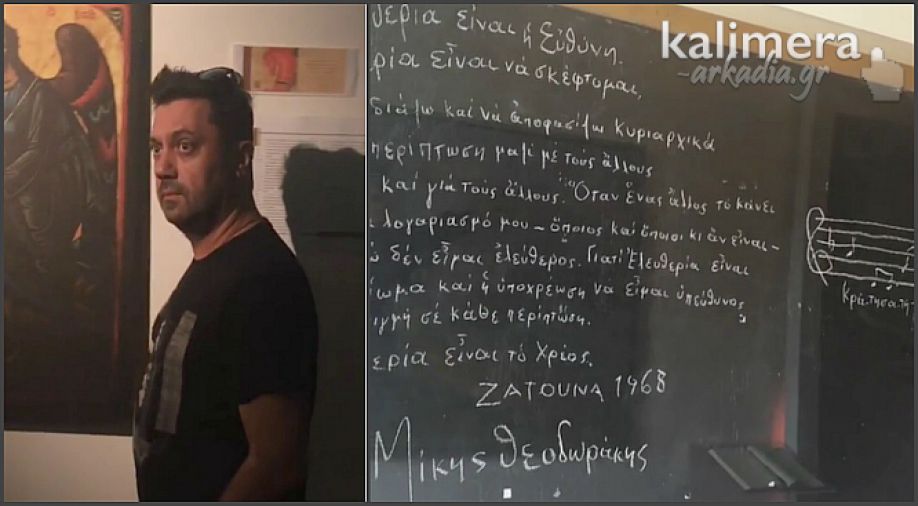 θερία εἶναι ἡ Εὐθύνη.
ρία εἶναι νὰ σκέφτομαι,
διάζω καὶ νὰ ἀποφασίζω κυριαρχικά
περίπτωση μαζὶ μὲ τοὺς ἄλλους
καὶ γιὰ τοὺς ἄλλους. Ὅταν ἕνας ἄλλος τὸ κάνει
λογαριασμό μου – ὅποιος καὶ ὅποιοι κι ἂν εἶναι –
δέν εἶμαι ἐλεύθερος. Γιατὶ Ἐλευθερία εἶναι
ίωμα καὶ ἡ ὑποχρέωση νὰ εἶμαι ὑπεύθυνος
ιγμὴ σέ κάθε περίπτωση.
ερία εἶναι τὸ Χρέος.
ΖΑΤΟΥΝΑ 1968
Μίκης Θεοδωράκης
kalimera
-arkadia.gr